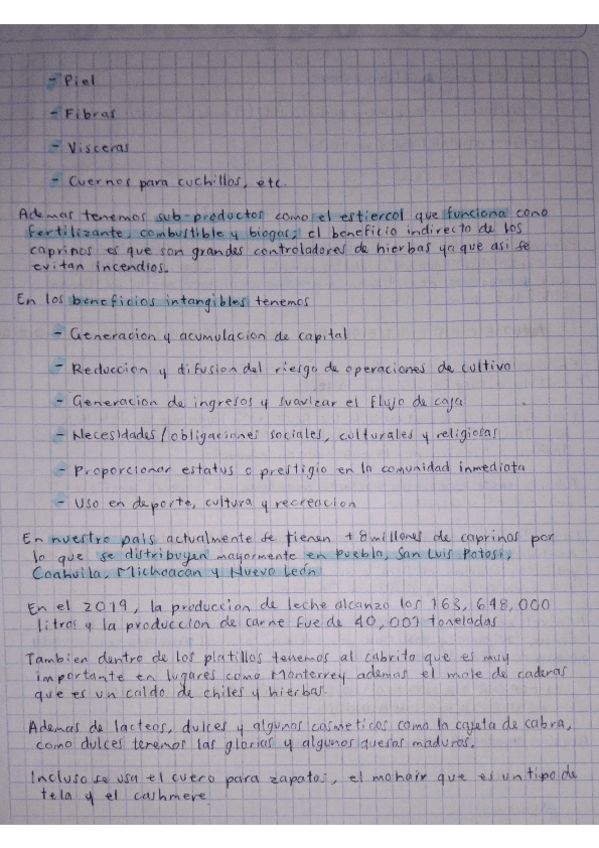 - Piel
- Fibras
- Visceras
- Cuernos para cuchillos, etc.
Ademas tenemos sub-productos como el estiercol que funciona como
fertilizante, combustible y biogas; el beneficio indirecto de los
caprinos es que son grandes controladores de hierbas ya que asi se
evitan incendios.
En los beneficios intangibles tenemos
- Generacion y acumulacion de capital
- Reduccion y difusion del riesgo de operaciones de cultivo
- Generacion de ingresos y suavizar el flujo de caja
- Necesidades/obligaciones sociales, culturales y religiosas
- Proporcionar estatus o prestigio en la comunidad inmediata
- Uso en deporte, cultura y recreacion
En nuestro pais actualmente se tienen +8 millones de caprinos por
lo que se distribuyen mayormente en Puebla, San Luis Potosi,
Coahuila, Michoacan y Nuevo León
En el 2019, la produccion de leche alcanzo los 163, 648, 000
litros y la produccion de carne fue de 40, 007 toneladas
Tambien dentro de los platillos tenemos al cabrito que es muy
importante en lugares como Monterrey ademas el mole de caderas
que es un caldo de chiles y hierbas.
Ademas de lacteos, dulces y algunos cosmeticos como la cajeta de cabra,
como dulces tenemos las glorias y algunos quesos maduros.
Incluso se usa el cuero para zapatos, el mohair que es un tipo de
tela y el cashmere